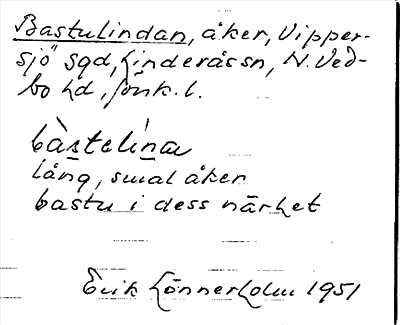 Bastulindan, åker, Vipper-
sjö sgd, Linderås sn, N. Ved-
bo hd, Jönk. l.
bàstelìna
lång, smal åker
bastu i dess närhet
Erik Lönnerholm 1951